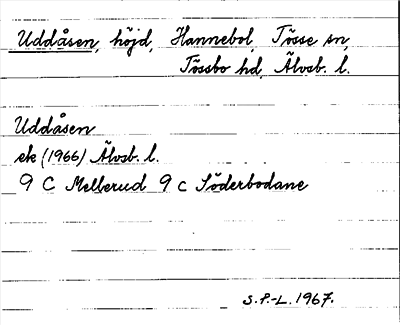 Uddåsen, höjd, Hannebol, Tösse sn,
Tössbo hd, Älvsb. l.
Uddåsen
ek (1966) Älvsb. l.
9 C Mellerud 9 c Söderbodane
S.P.-L. 1967.